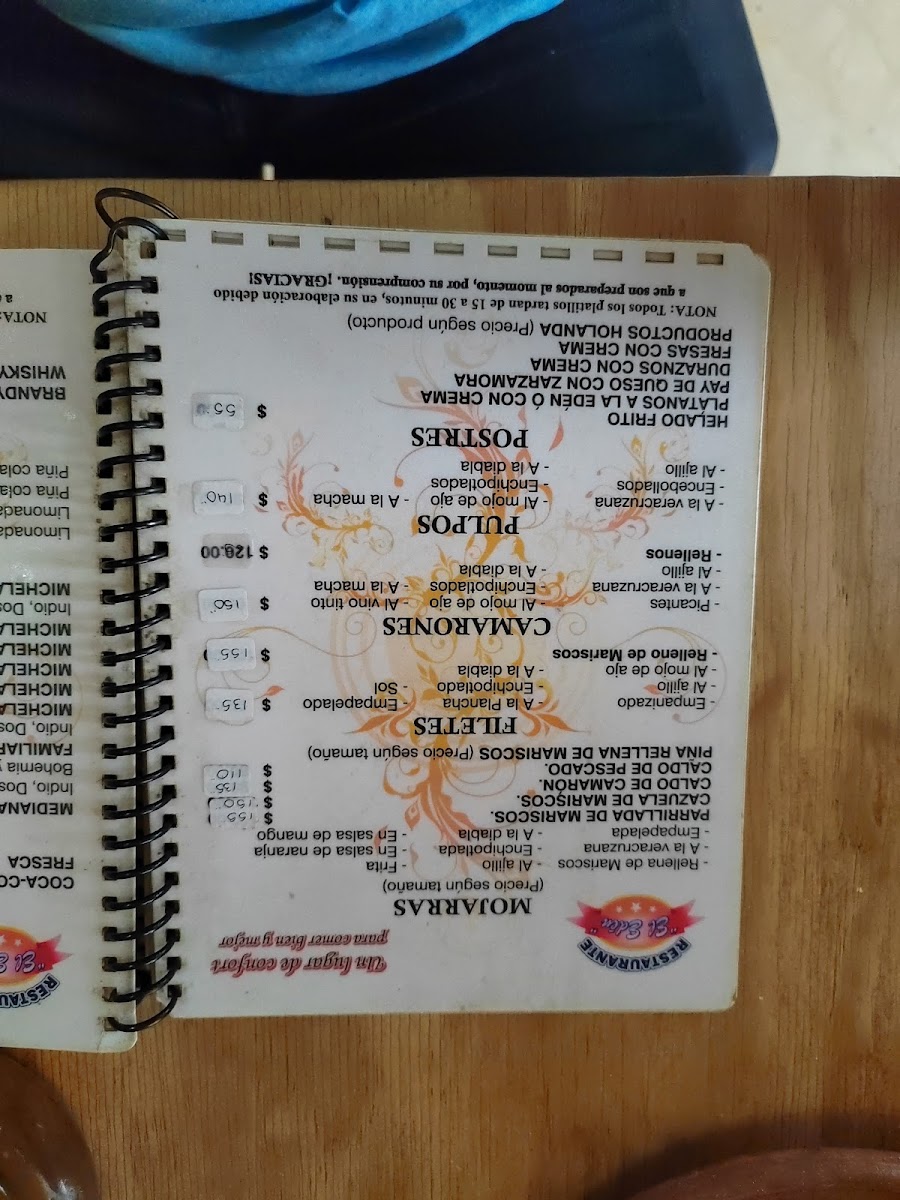 RESTAURANTE
"El Edén"
Un lugar de confort
para comer bien y mejor
MOJARRAS
(Precio según tamaño)
- Rellena de Mariscos - Al ajillo - Frita
- A la veracruzana - Enchipotlada - En salsa de naranja
- Empapelada - A la diabla - En salsa de mango
PARRILLADA DE MARISCOS. $ 155
CAZUELA DE MARISCOS. $ 150
CALDO DE CAMARÓN. $ 135
CALDO DE PESCADO. $ 110
PIÑA RELLENA DE MARISCOS (Precio según tamaño)
FILETES
- Empanizado - A la Plancha - Empapelado $ 135
- Al ajillo - Enchipotlado - Sol
- Al mojo de ajo - A la diabla
- Relleno de Mariscos $ 155
CAMARONES
- Picantes - Al mojo de ajo - Al vino tinto $ 150
- A la veracruzana - Enchipotlados - A la macha
- Al ajillo - A la diabla
- Rellenos $
PULPOS
- A la veracruzana - Al mojo de ajo - A la macha $ 140
- Encebollados - Enchipotlados
- Al ajillo - A la diabla
POSTRES
HELADO FRITO $ 55
PLATANOS A LA EDÉN Ó CON CREMA
PAY DE QUESO CON ZARZAMORA
DURAZNOS CON CREMA
FRESAS CON CREMA
PRODUCTOS HOLANDA (Precio según producto)
NOTA: Todos los platillos tardan de 15 a 30 minutos, en su elaboración debido
a que son preparados al momento, por su comprensión. ¡GRACIAS!
RESTAU
"El E
COCA-CO
FRESCA
MEDIANA
Indio, Dos
Bohemia y
FAMILIAR
Indio, Dos
MICHELA
MICHELA
MICHELA
MICHELA
MICHELA
Indio, Dos
MICHELA
Limonada
Limonada
Piña cola
Piña cola
BRANDY
WHISKY
NOTA:
a